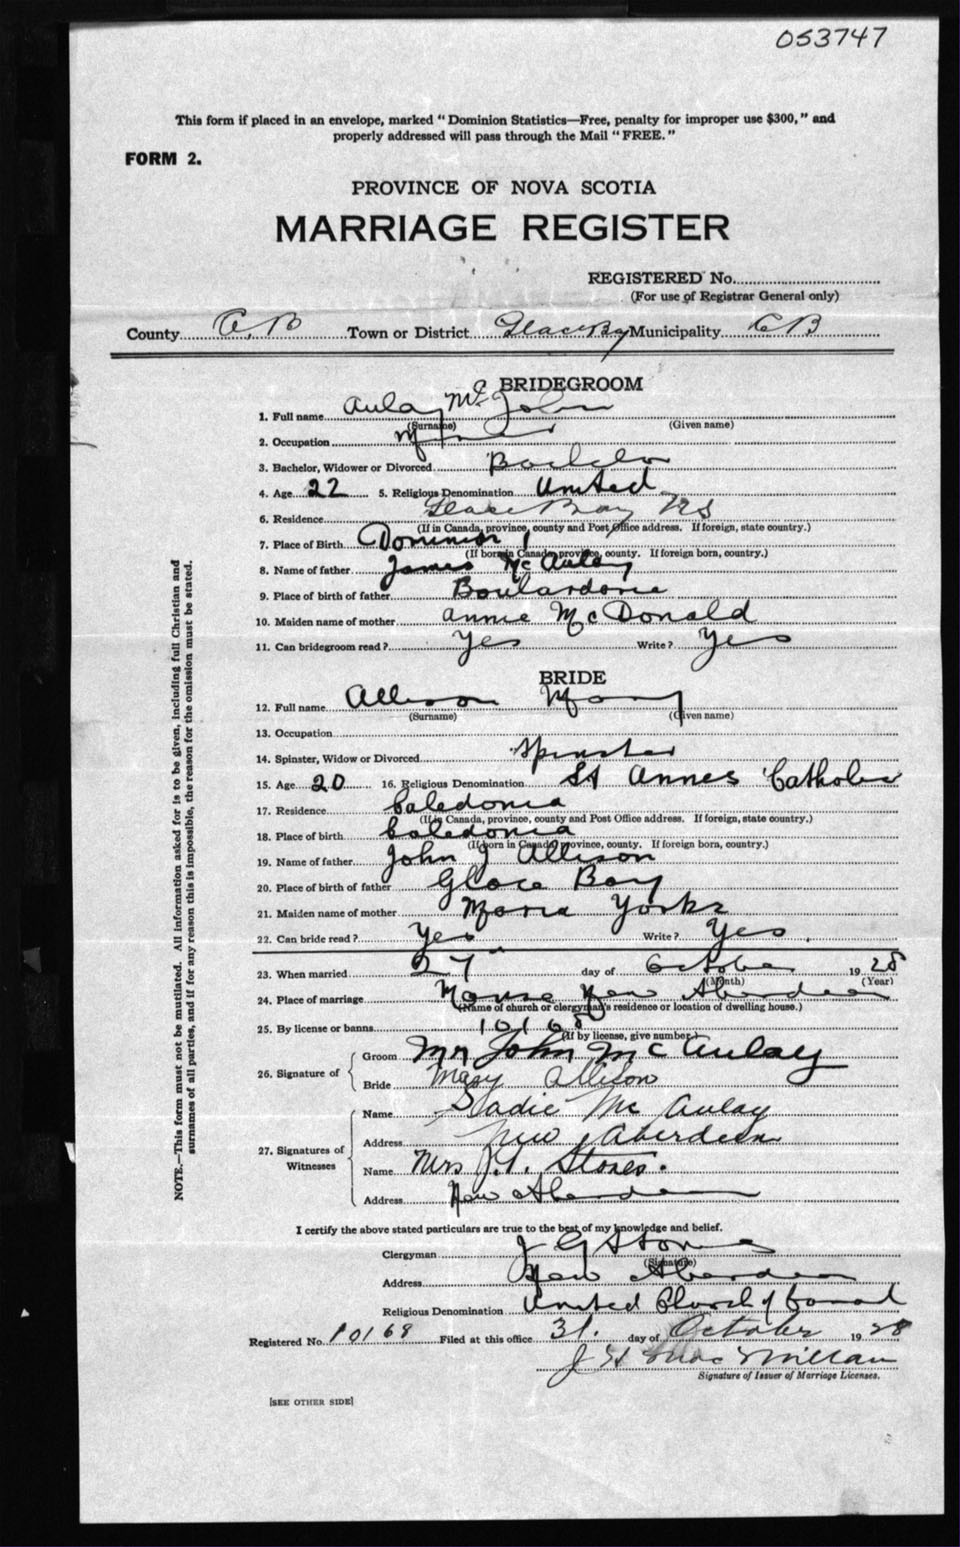 053747
This form if placed in an envelope, marked "Dominion Statistics—Free, penalty for improper use $300," and
properly addressed will pass through the Mail "FREE."
FORM 2.
PROVINCE OF NOVA SCOTIA
MARRIAGE REGISTER
REGISTERED No.
(For use of Registrar General only)
County C.B Town or District Glace Bay Municipality C B
BRIDEGROOM
1. Full name Aulay Mc John
(Surname) (Given name)
2. Occupation Miner
3. Bachelor, Widower or Divorced Bachelor
4. Age 22 5. Religious Denomination United
6. Residence Glace Bay NS
(If in Canada, province, county and Post Office address. If foreign, state country.)
7. Place of Birth Dominion 1
(If born in Canada province, county. If foreign born, country.)
8. Name of father James McAulay
9. Place of birth of father Boulardarie
10. Maiden name of mother Annie McDonald
11. Can bridegroom read? Yes Write? Yes
BRIDE
12. Full name Allison Mary
(Surname) (Given name)
13. Occupation
14. Spinster, Widow or Divorced Spinster
15. Age 20 16. Religious Denomination St Annes Catholic
17. Residence Caledonia
(If in Canada, province, county and Post Office address. If foreign, state country.)
18. Place of birth Caledonia
(If born in Canada province, county. If foreign born, country.)
19. Name of father John J Allison
20. Place of birth of father Glace Bay
21. Maiden name of mother Maria Yorke
22. Can bride read? Yes Write? Yes.
23. When married 27 day of October 1928
(Month) (Year)
24. Place of marriage Manse New Aberdeen
(Name of church or clergyman's residence or location of dwelling house.)
25. By license or banns 10168
(If by license, give number.)
26. Signature of
Groom Mr John McAulay
Bride Mary Allison
27. Signatures of Witnesses
Name Sadie McAulay
Address New Aberdeen
Name Mrs J.G. Stones.
Address New Aberdeen
I certify the above stated particulars are true to the best of my knowledge and belief.
Clergyman J G Stones
(Signature)
Address New Aberdeen
Religious Denomination United Church of Canada
Registered No. 10168 Filed at this office 31. day of October 1928
J H MacMillan
Signature of Issuer of Marriage Licenses.
[SEE OTHER SIDE]
NOTE.—This form must not be mutilated. All information asked for is to be given, including full Christian and
surnames of all parties, and if for any reason this is impossible, the reason for the omission must be stated.